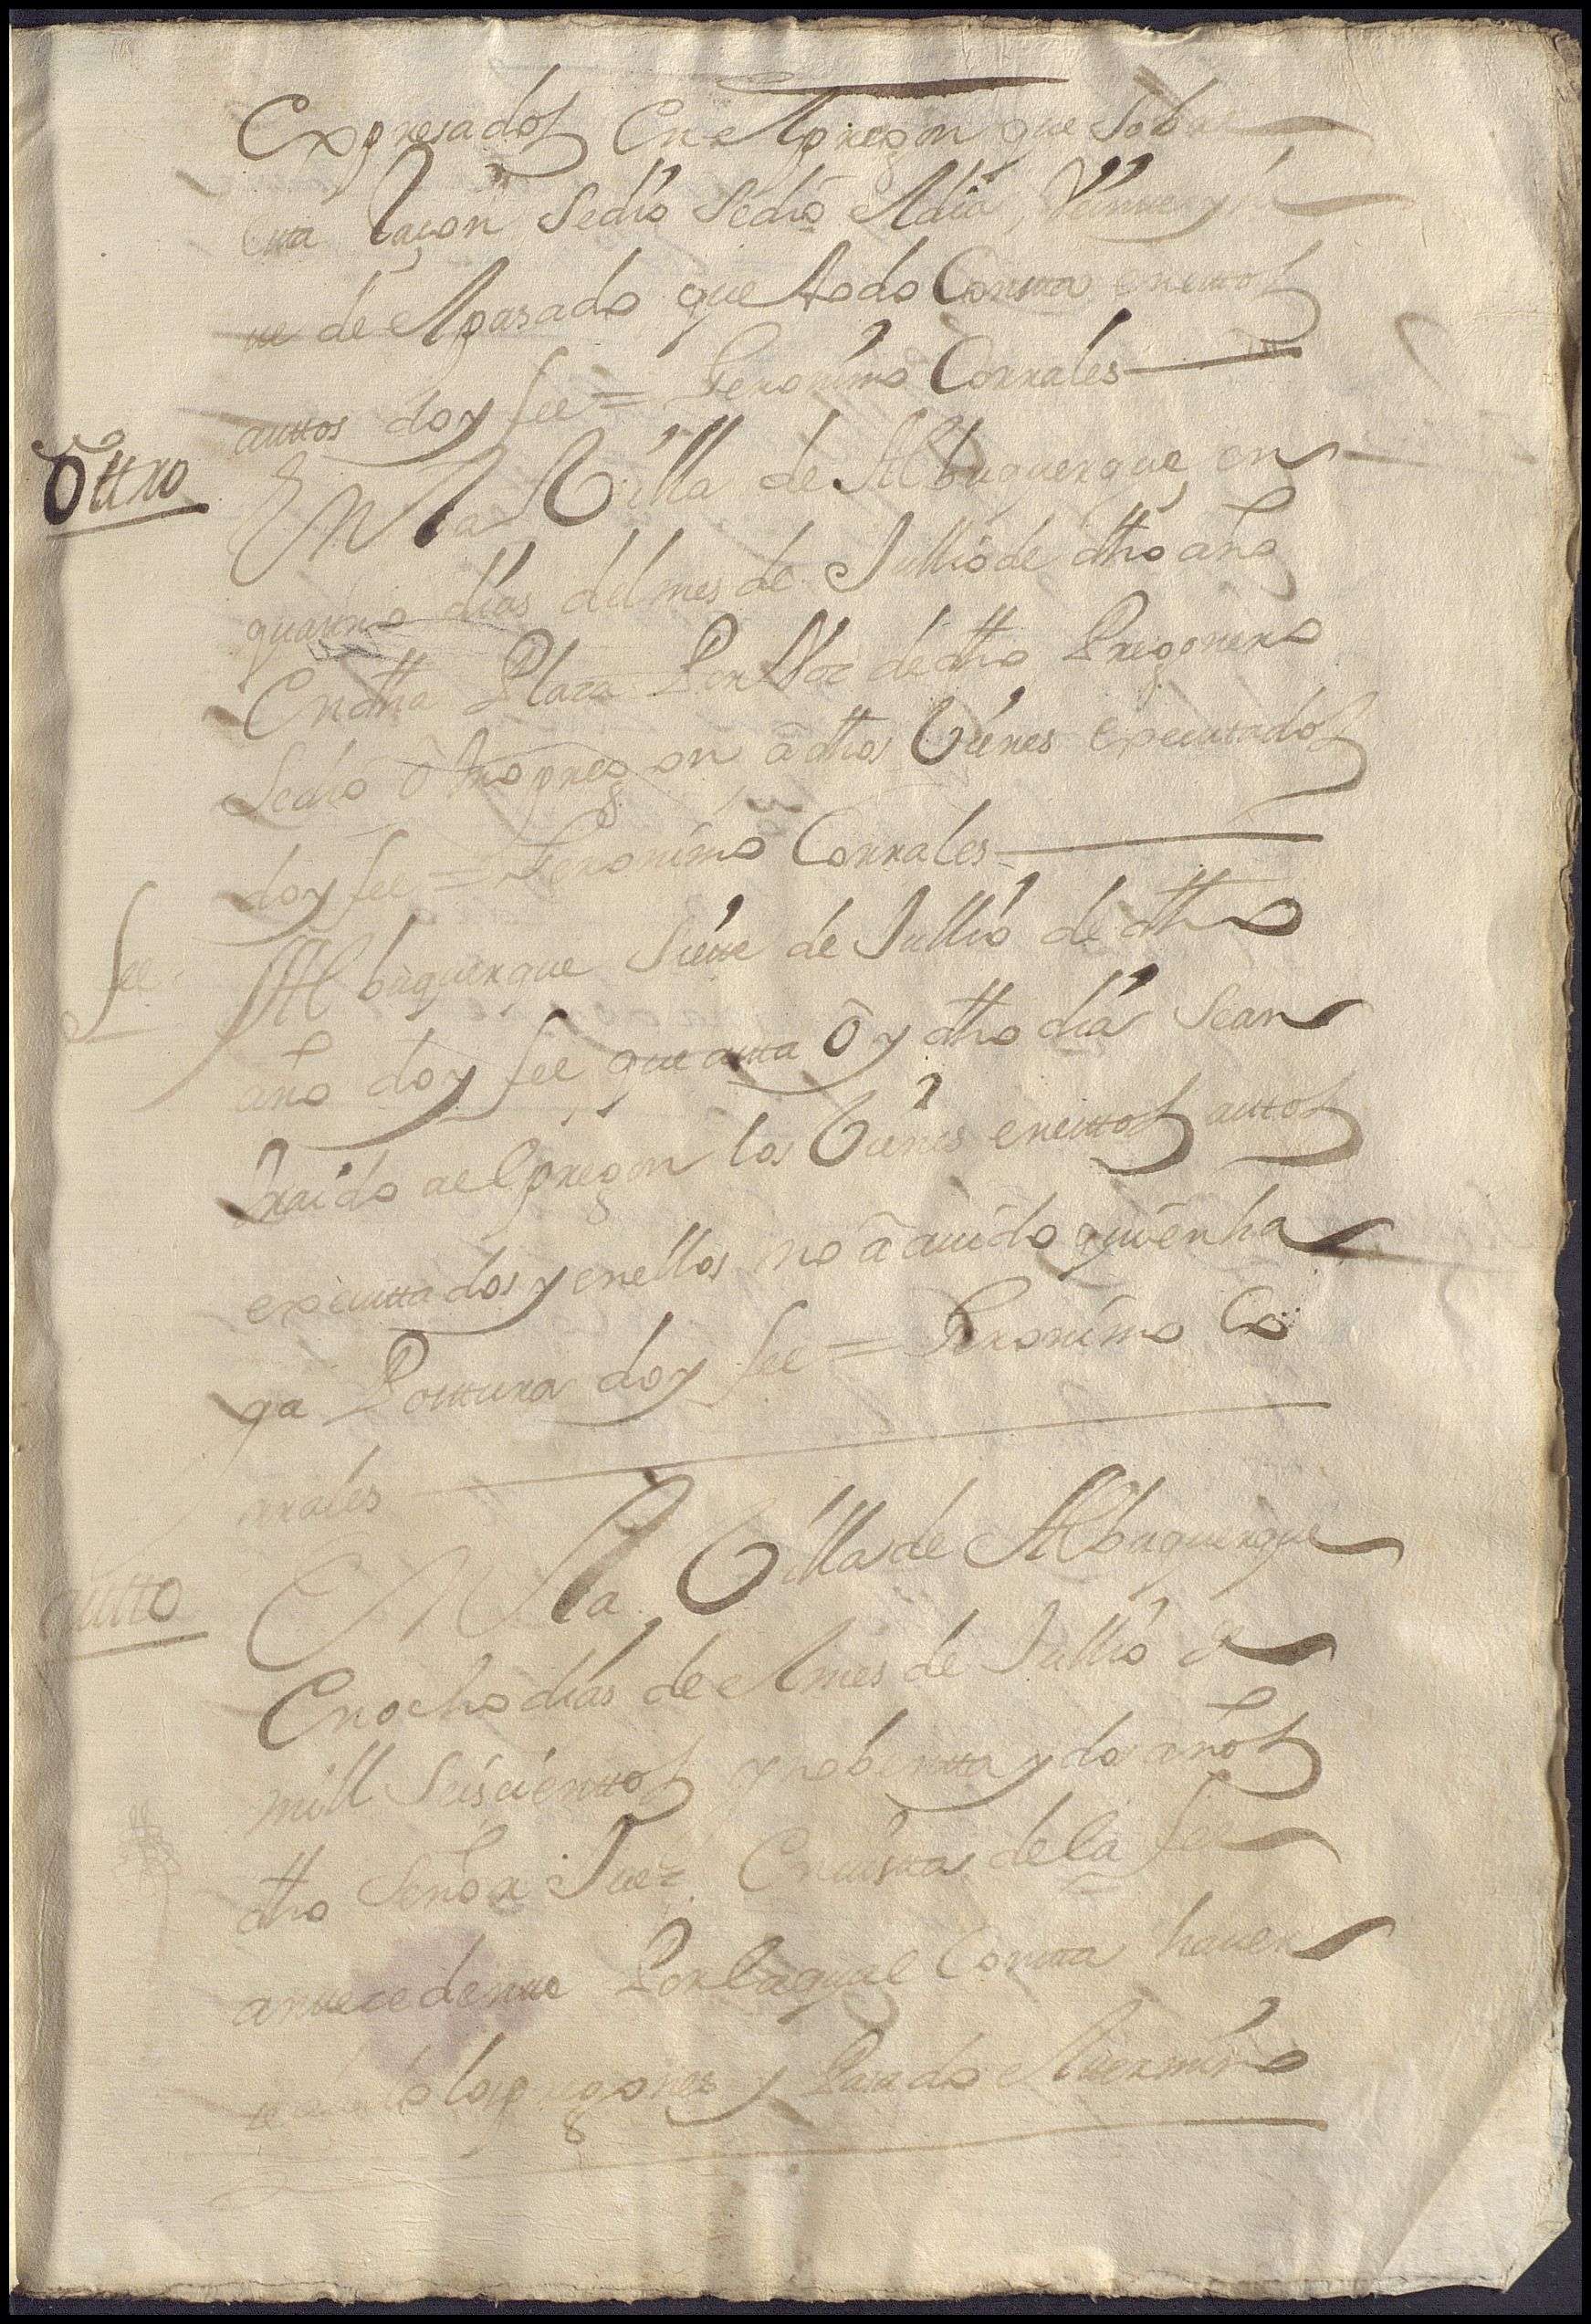 Expresados En el pregon que sobre
esta raçon sedio sedio el dia Veinte y nue
ue de el pasado que todo Consta en estos
auttos doy fee = Geronimo Corrales
Ottro
En la Villa de Alburquerque en
quatro dias del mes de Jullio de dho año
En dha Plaza Por Voz de dho Pregonero
sedio otro pregon â dhos bienes executados
doy fee = Geronimo Corrales
fee
Alburquerque siette de Jullio de dho
año doy fee que astta oy dho dia sean
traido ael pregon los bienes en esttos auttos
executtados y en ellos no â auido quien ha
ga Posttura doy fee = Geronimo Co
rrales
autto
En la Villa de Alburquerque
En ocho dias de el mes de Jullio de
mill seiscienttos y nobentta y dos años
dho señor Juez En uistta de la fee
anttecedentte Por la qual Constta hauer
se dado los pregones y Pasado el termino